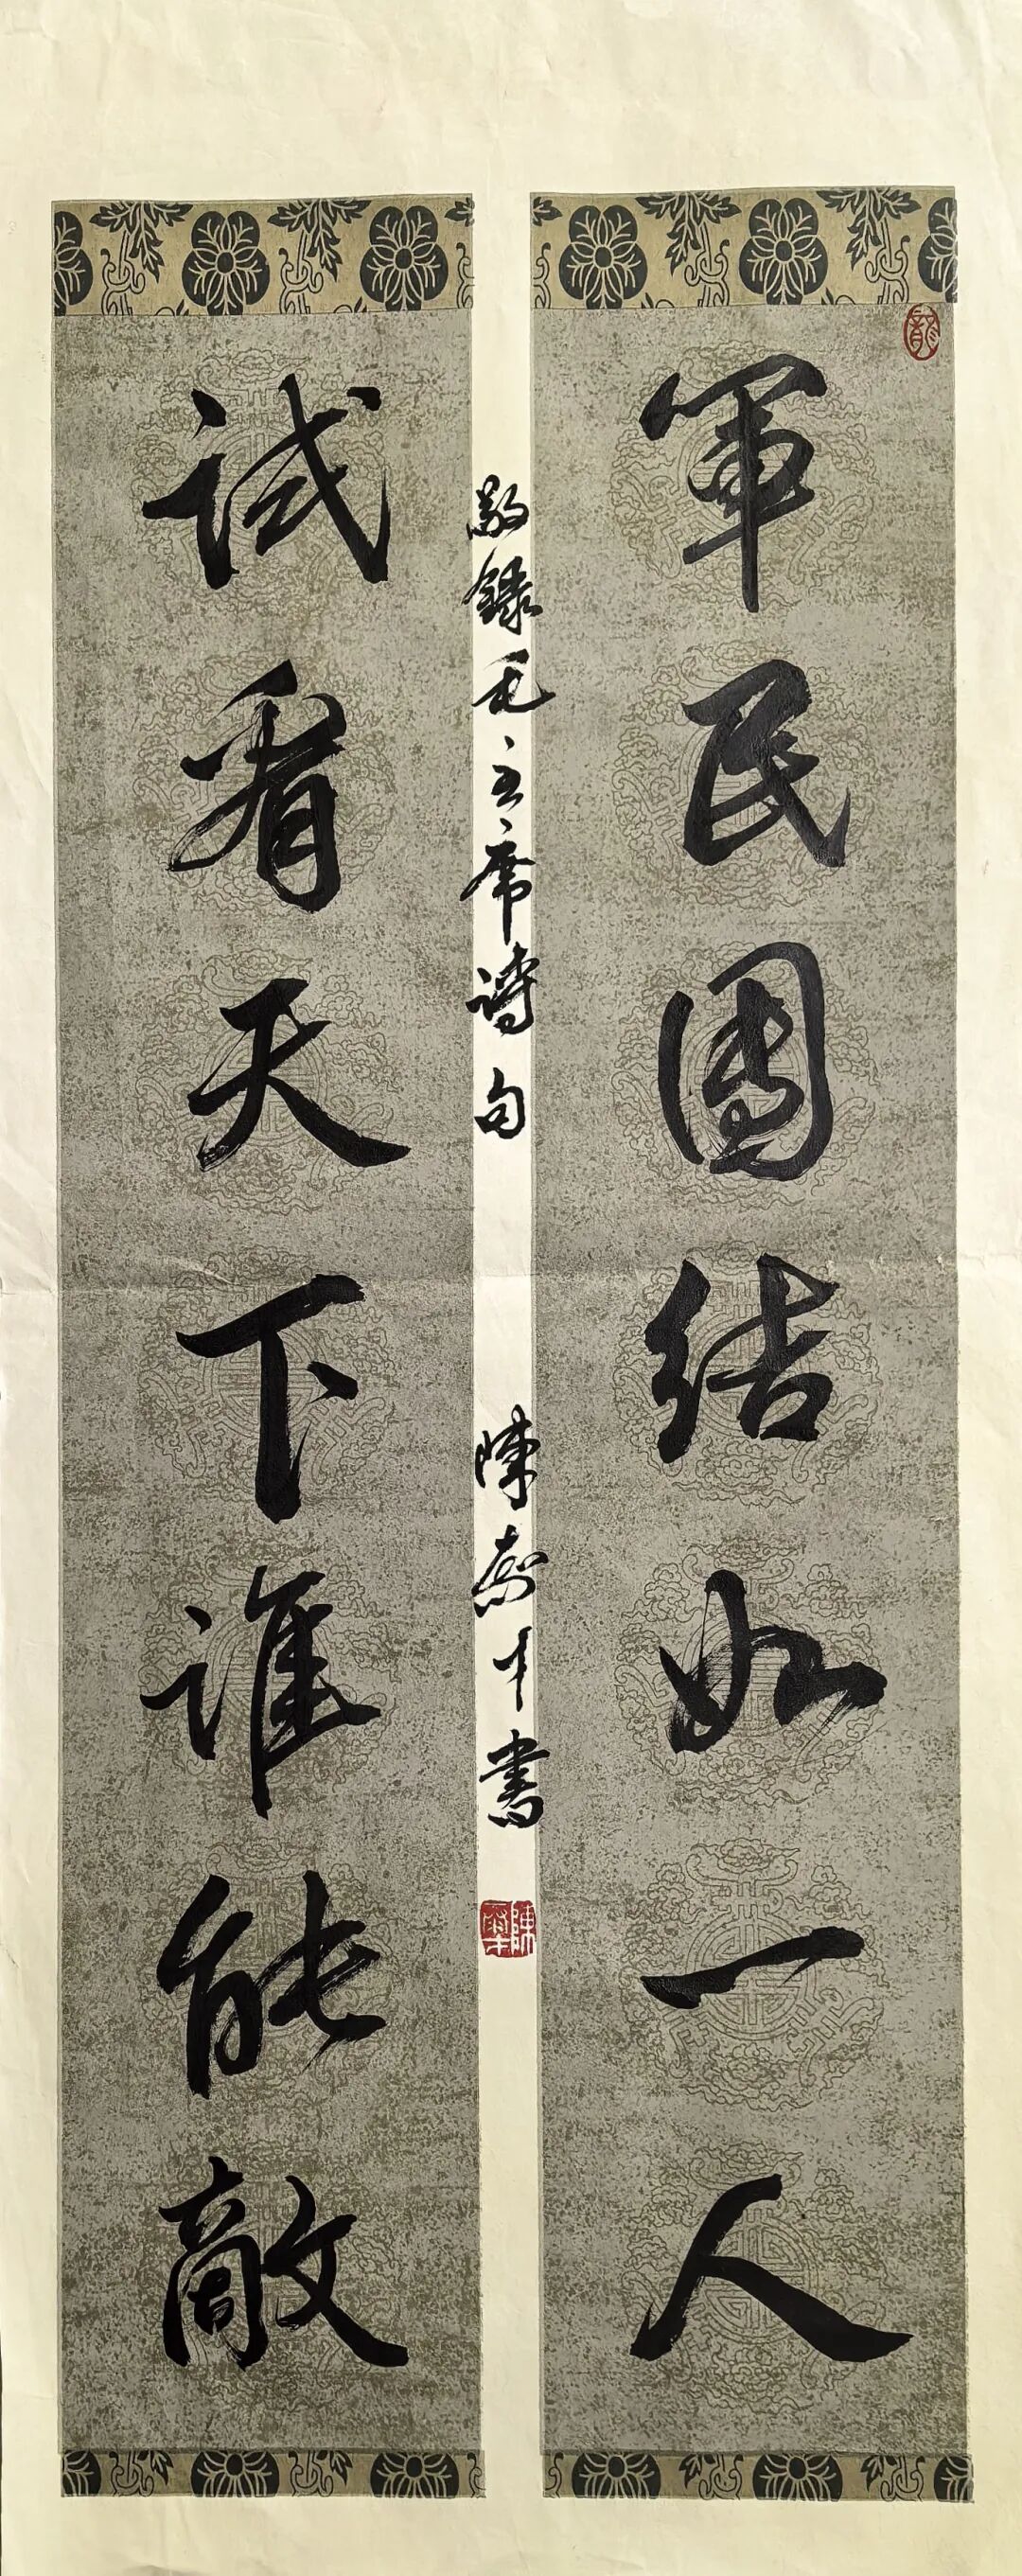 軍民團結如一人
試看天下誰能敵
敬錄毛主席詩句
陳 書
龍
陳